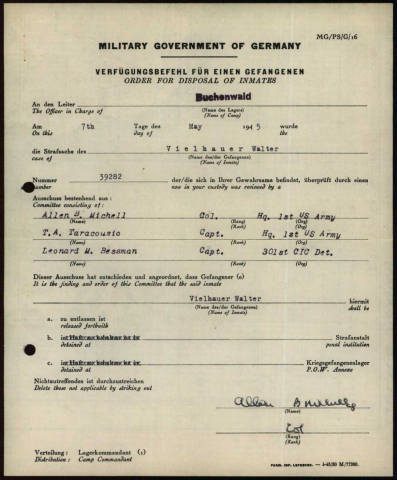 MG/PS/G/16
MILITARY GOVERNMENT OF GERMANY
VERFÜGUNGSBEFEHL FÜR EINEN GEFANGENEN
ORDER FOR DISPOSAL OF INMATES
Buchenwald
An den Leiter (Name des Lagers)
The Officer in Charge of (Name of Camp)
Am 7th Tage des May 1945 wurde
On this day of the
die Strafsache des Vielhauer Walter
case of (Name des/der Gefangenen)
(Name of Inmate)
Nummer 39282 der/die sich in Ihrer Gewahrsame befindet, überprüft durch einen
number now in your custody was reviewed by a
Ausschuss bestehend aus:
Committee consisting of:
Allen B. Michell Col. Hq. 1st US Army
(Name) (Rang) (Org)
(Rank)
T.A. Taracousio Capt. Hq. 1st US Army
(Name) (Rang) (Org)
(Rank)
Leonard M. Bessman Capt. 301st CIC Det.
(Name) (Rang) (Org)
(Rank)
Dieser Ausschuss hat entschieden und angeordnet, dass Gefangener (e)
It is the finding and order of this Committee that the said inmate
Vielhauer Walter hiermit
(Name des/der Gefangenen) shall be
(Name of Inmate)
a. zu entlassen ist
released forthwith
b. Strafanstalt
detained at penal institution
c. Kriegsgefangenenlager
detained at P.O.W. Annexe
Nichtzutreffendes ist durchzustreichen
Delete those not applicable by striking out
Allen B
(Name)
Col
(Rang)
(Rank)
Verteilung : Lagerkommandant (1)
Distribution : Camp Commandant